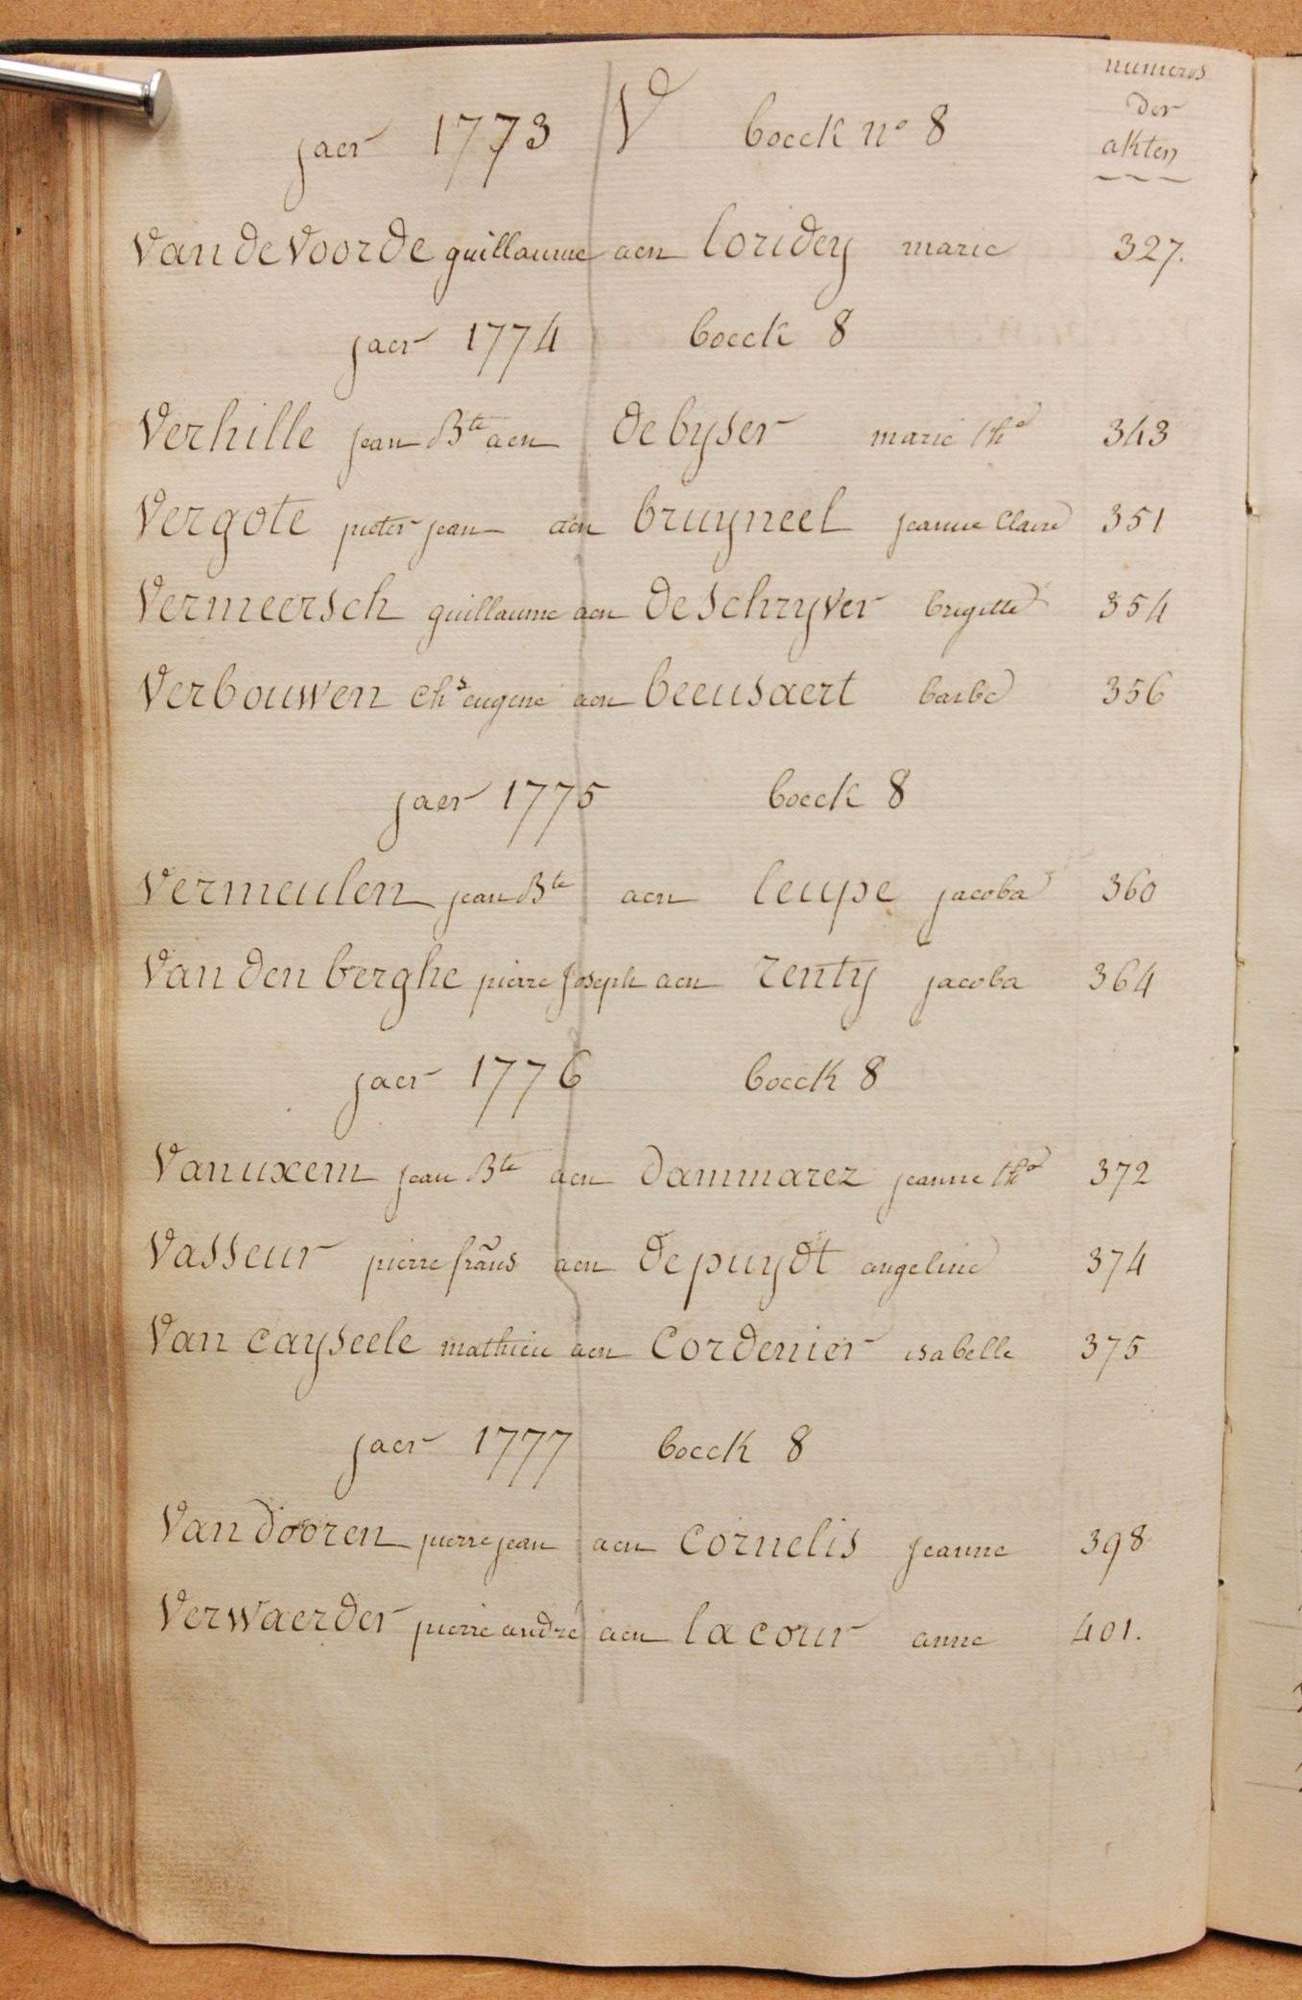 numeros
der
akten
jaer 1773 V boeck nº 8
Van de Voorde guillaume aen loridey marie 327.
jaer 1774 boeck 8
Verhille jean Bte aen de byser marie the 343
Vergote pieter jean aen bruyneel jeanne claire 351
Vermeersch guillaume aen deschryver brigitte 354
Verbouwen chs eugene aen beeusaert barbe 356
jaer 1775 boeck 8
Vermeulen jean Bte aen leupe jacoba 360
Van den berghe pierre joseph aen renty jacoba 364
jaer 1776 boeck 8
Vanuxem jean Bte aen dammarez jeanne the 372
Vasseur pierre frans aen depuydt angeline 374
Van cayseele mathieu aen cordenier isabelle 375
jaer 1777 boeck 8
Van dooren pierre jean aen cornelis jeanne 398
Verwaerder pierre andré aen lacour anne 401.